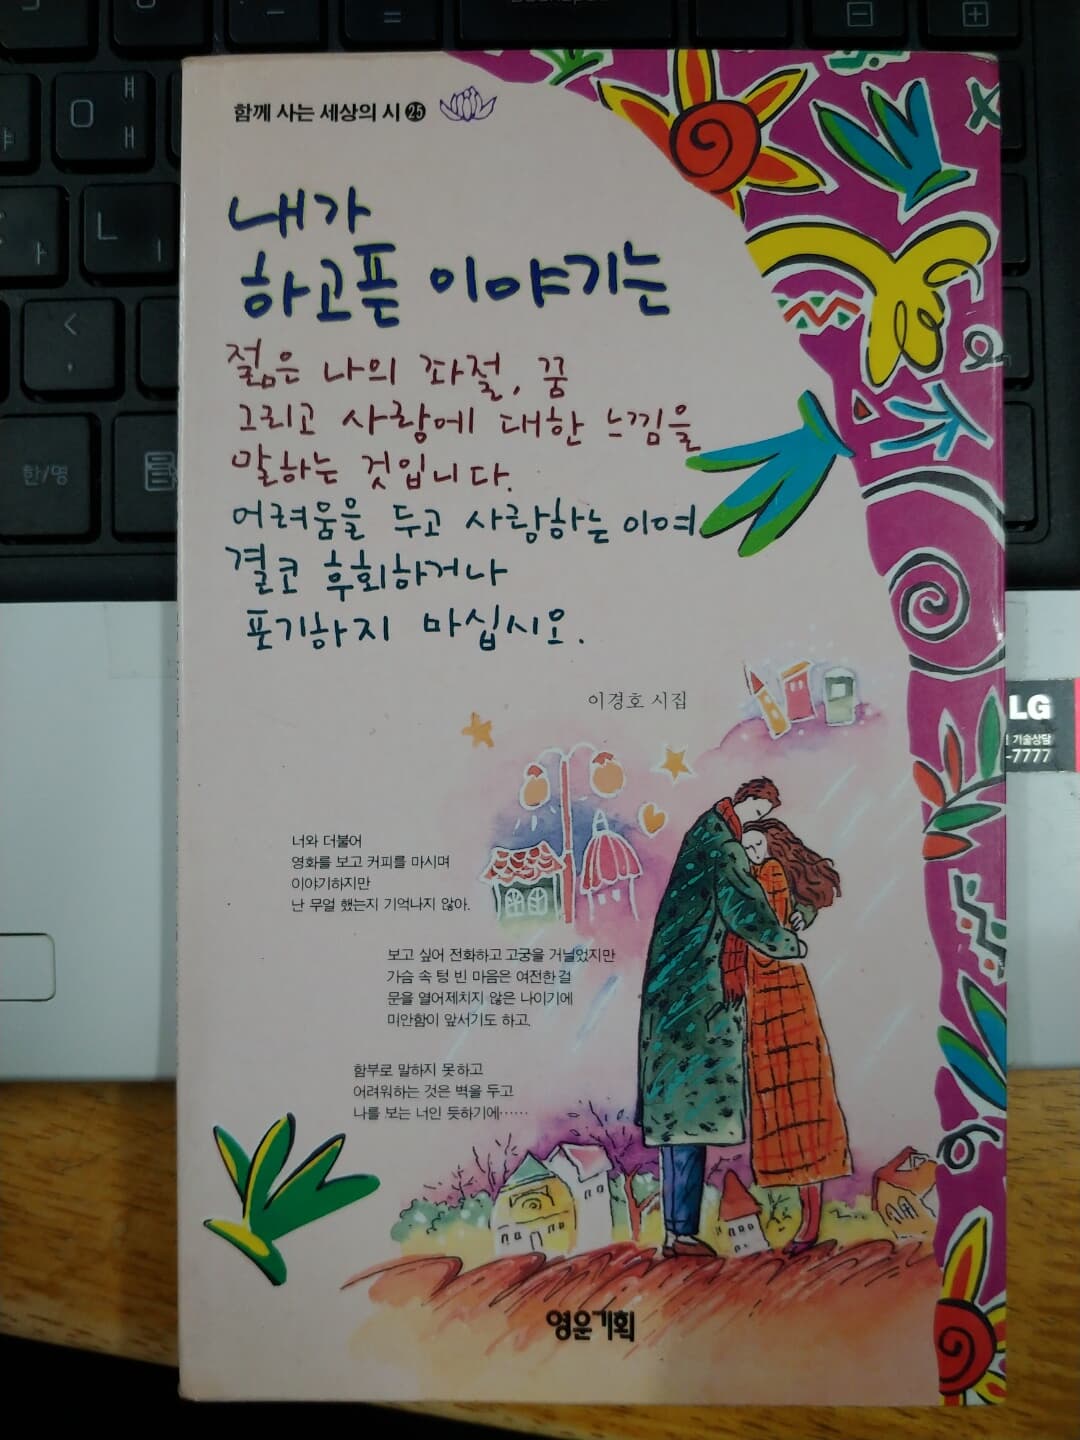 함께 사는 세상의 시 25
내가
하고픈 이야기는
젊은 나의 좌절, 꿈
그리고 사랑에 대한 느낌을
말하는 것입니다.
어려움을 두고 사랑하는 이여
결코 후회하거나
포기하지 마십시오.
이경호 시집
너와 더불어
영화를 보고 커피를 마시며
이야기하지만
난 무얼 했는지 기억나지 않아.
보고 싶어 전화하고 고궁을 거닐었지만
가슴 속 텅 빈 마음은 여전한 걸
문을 열어제치지 않은 나이기에
미안함이 앞서기도 하고.
함부로 말하지 못하고
어려워하는 것은 벽을 두고
나를 보는 너인 듯하기에……
영운기획
한/영
LG
기술상담
-7777